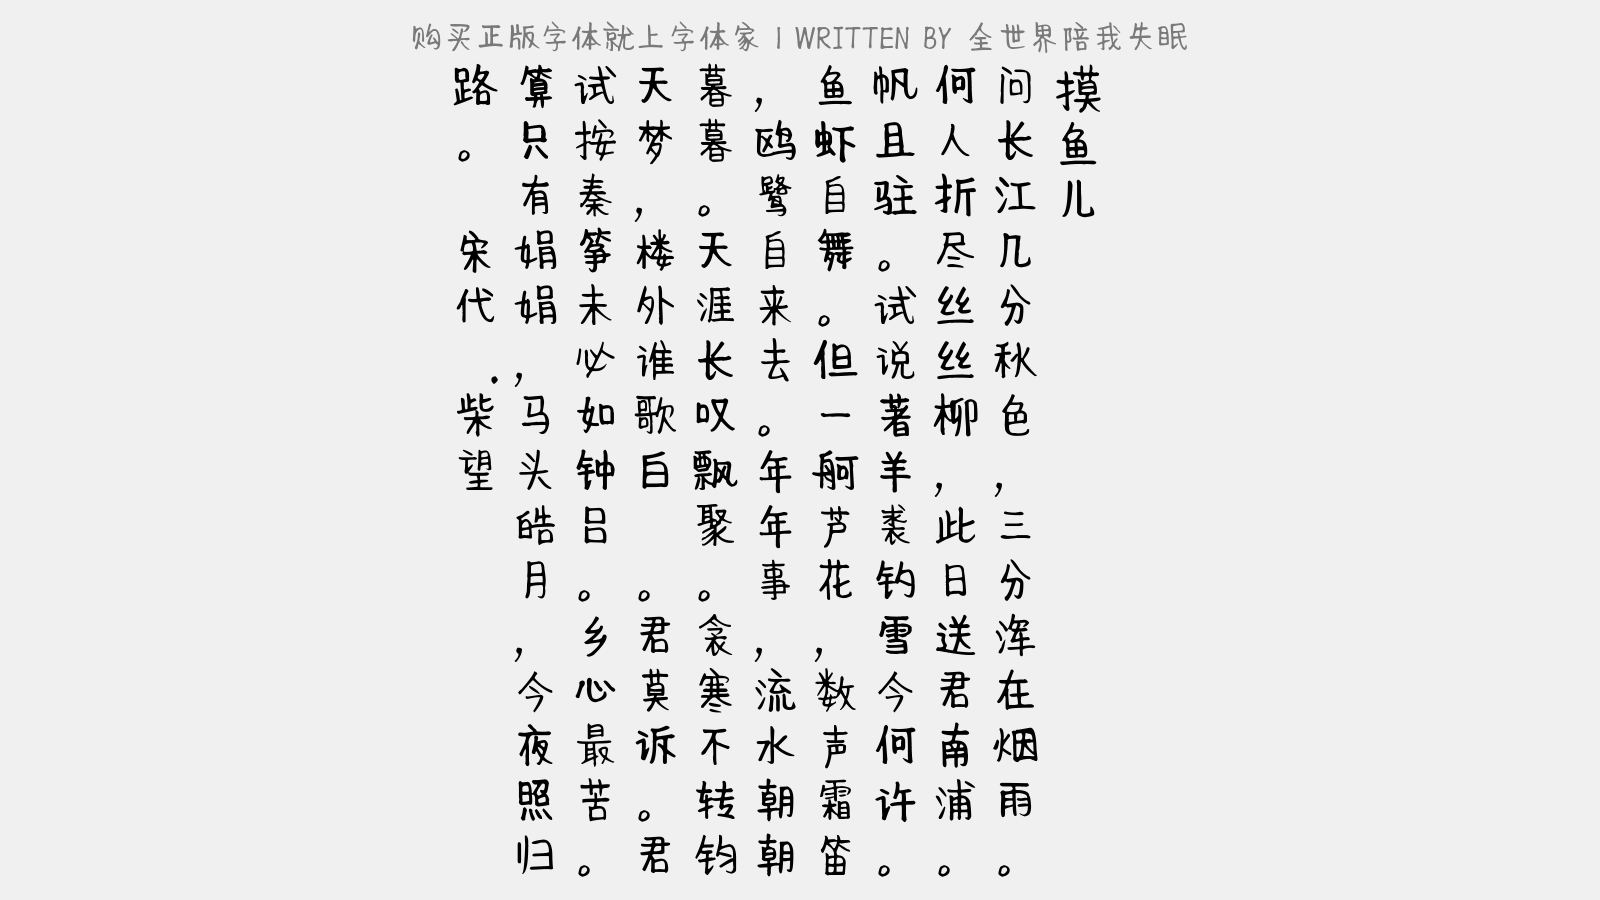 购买正版字体就上字体家 | WRITTEN BY 全世界陪我失眠
摸鱼儿
问长江几分秋色，三分浑在烟雨。
何人折尽丝丝柳，此日送君南浦。
帆且驻。试说著羊裘钓雪今何许。
鱼虾自舞。但一舸芦花，数声霜笛
，鸥鹭自来去。年年事，流水朝朝
暮暮。天涯长叹飘聚。衾寒不转钧
天梦，楼外谁歌白 。君莫诉。君
试按秦筝未必如钟吕。乡心最苦。
算只有娟娟，马头皓月，今夜照归
路。 宋代.柴望